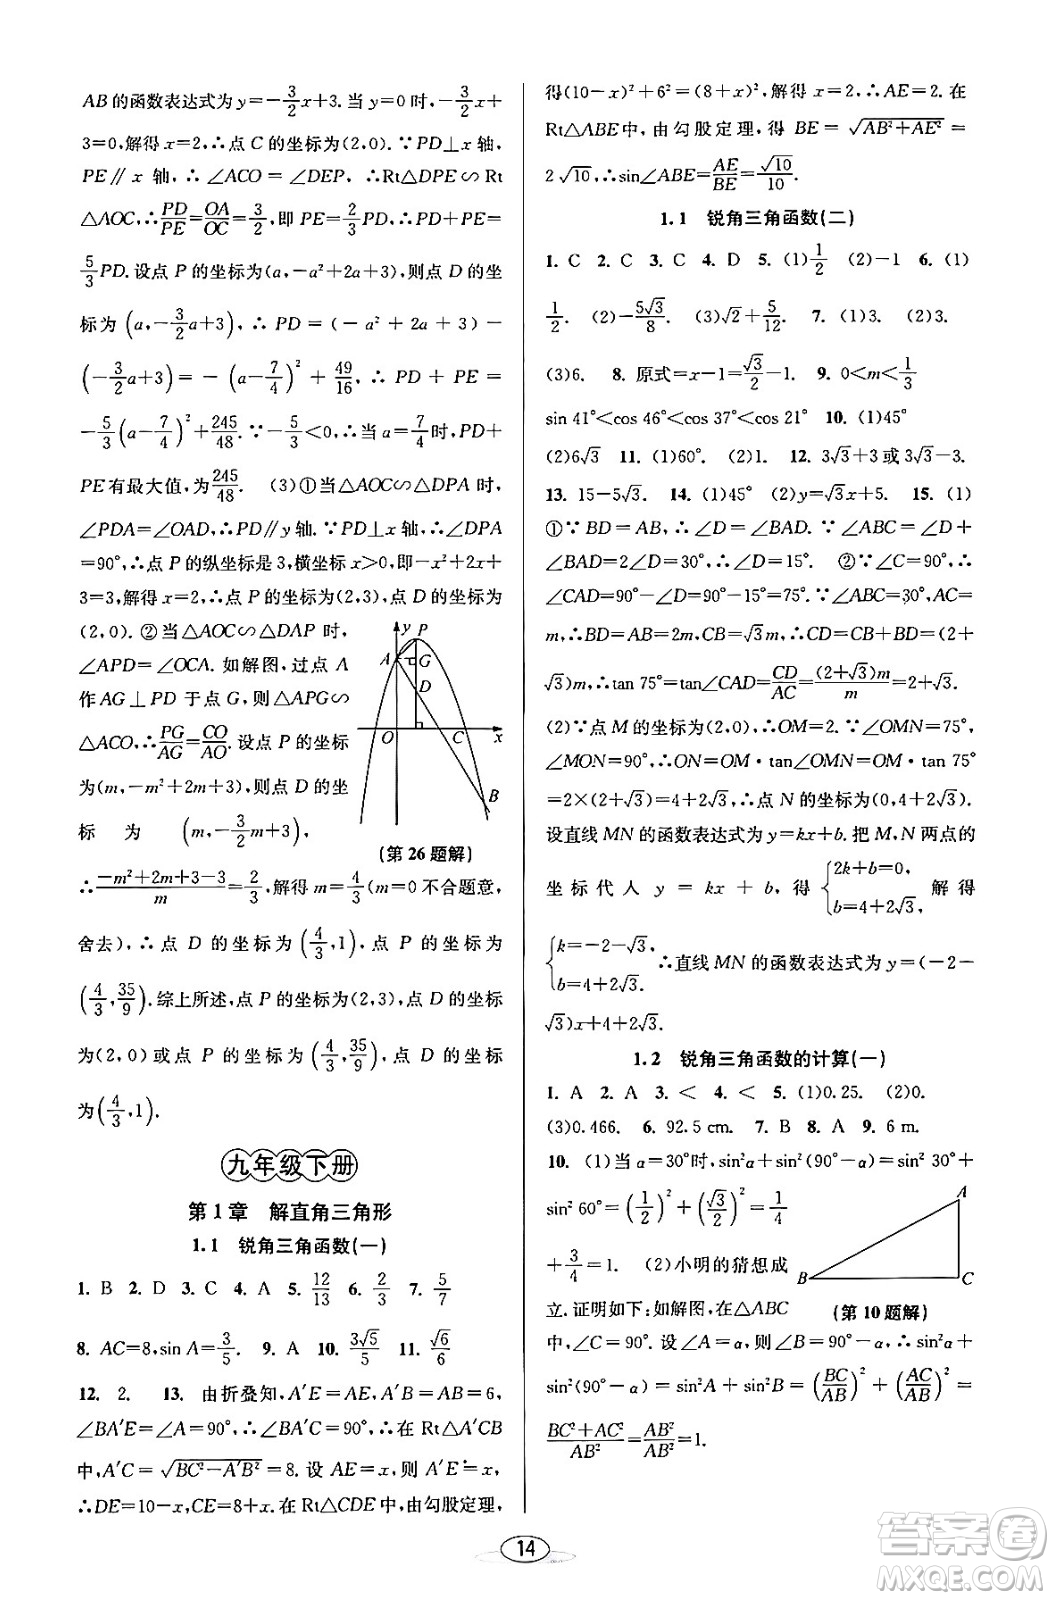 AB的函数表达式为y=-3/2x+3.当y=0时,-3/2x+
3=0,解得x=2,∴点C的坐标为(2,0).∵PD⊥x轴,
PE∥x轴,∴∠ACO=∠DEP,∴Rt△DPE∽Rt
△AOC,∴PD/PE=OA/OC=3/2,即PE=2/3PD,∴PD+PE=
5/3PD.设点P的坐标为(a,-a²+2a+3),则点D的坐
标为(a,-3/2a+3),∴PD=(-a²+2a+3)-
(-3/2a+3)=-(a-7/4)²+49/16,∴PD+PE=
-5/3(a-7/4)²+245/48.∵-5/3<0,∴当a=7/4时,PD+
PE有最大值,为245/48. (3)①当△AOC∽△DPA时,
∠PDA=∠OAD,∴PD∥y轴.∵PD⊥x轴,∴∠DPA
=90°,∴点P的纵坐标是3,横坐标x>0,即-x²+2x+
3=3,解得x=2,∴点P的坐标为(2,3),点D的坐标为
(2,0). ②当△AOC∽△DAP时,
∠APD=∠OCA.如解图,过点A
作AG⊥PD于点G,则△APG∽
△ACO,∴PG/AG=CO/AO.设点P的坐标为
(m,-m²+2m+3),则点D的坐
标为(m,-3/2m+3),
y
P
A
G
D
O
C
x
B
(第26题解)
∴(-m²+2m+3-3)/m=2/3,解得m=4/3(m=0不合题意,
舍去),∴点D的坐标为(4/3,1),点P的坐标为
(4/3,35/9).综上所述,点P的坐标为(2,3),点D的坐标
为(2,0)或点P的坐标为(4/3,35/9),点D的坐标
为(4/3,1).
九年级下册
第1章 解直角三角形
1.1 锐角三角函数(一)
1. B 2. D 3. C 4. A 5. 12/13 6. 2/3 7. 5/7
8. AC=8,sin A=3/5. 9. A 10. 3√5/5 11. √6/6
12. 2. 13. 由折叠知,A′E=AE,A′B=AB=6,
∠BA′E=∠A=90°,∴∠BA′C=90°,∴在Rt△A′CB
中,A′C=√(BC²-A′B²)=8.设AE=x,则A′E=x,
∴DE=10-x,CE=8+x.在Rt△CDE中,由勾股定理,
得(10-x)²+6²=(8+x)²,解得x=2,∴AE=2.在
Rt△ABE中,由勾股定理,得BE=√(AB²+AE²)=
2√10,∴sin∠ABE=AE/BE=√10/10.
1.1 锐角三角函数(二)
1. C 2. C 3. C 4. D 5. (1)1/2 (2)-1 6. (1)
1/2. (2)-5√3/8. (3)√2+5/12. 7. (1)3. (2)3.
(3)6. 8. 原式=x-1=√3/2-1. 9. 0<m<1/3
sin 41°<cos 46°<cos 37°<cos 21° 10. (1)45°
(2)6√3 11. (1)60°. (2)1. 12. 3√3+3或3√3-3.
13. 15-5√3. 14. (1)45° (2)y=√3x+5. 15. (1)
①∵BD=AB,∴∠D=∠BAD.∵∠ABC=∠D+
∠BAD=2∠D=30°,∴∠D=15°. ②∵∠C=90°,∴
∠CAD=90°-∠D=90°-15°=75°.∵∠ABC=30°,AC=
m,∴BD=AB=2m,BC=√3m,∴CD=BD+BC=(2+
√3)m,∴tan 75°=tan∠CAD=CD/AC=(2+√3)m/m=2+√3.
(2)∵点M的坐标为(2,0),∴OM=2.∵∠OMN=75°,
∠MON=90°,∴ON=OM·tan∠OMN=OM·tan 75°
=2×(2+√3)=4+2√3,∴点N的坐标为(0,4+2√3).
设直线MN的函数表达式为y=kx+b.把M,N两点的
坐标代入y=kx+b,得{2k+b=0, b=4+2√3, 解得
{k=-2-√3, b=4+2√3. ∴直线MN的函数表达式为y=(-2-
√3)x+4+2√3.
1.2 锐角三角函数的计算(一)
1. A 2. A 3. < 4. < 5. (1)0.25. (2)0.
(3)0.466. 6. 92.5 cm. 7. B 8. A 9. 6 m.
10. (1)当α=30°时,sin²α+sin²(90°-α)=sin² 30°+
sin² 60°=(1/2)²+(√3/2)²=1/4
+3/4=1. (2)小明的猜想成
立.证明如下:如解图,在△ABC
A
B
C
(第10题解)
中,∠C=90°.设∠A=α,则∠B=90°-α,∴sin²α+
sin²(90°-α)=sin²A+sin²B=(BC/AB)²+(AC/AB)²=
(BC²+AC²)/AB²=AB²/AB²=1.
14
答案卷
MXQE.COM